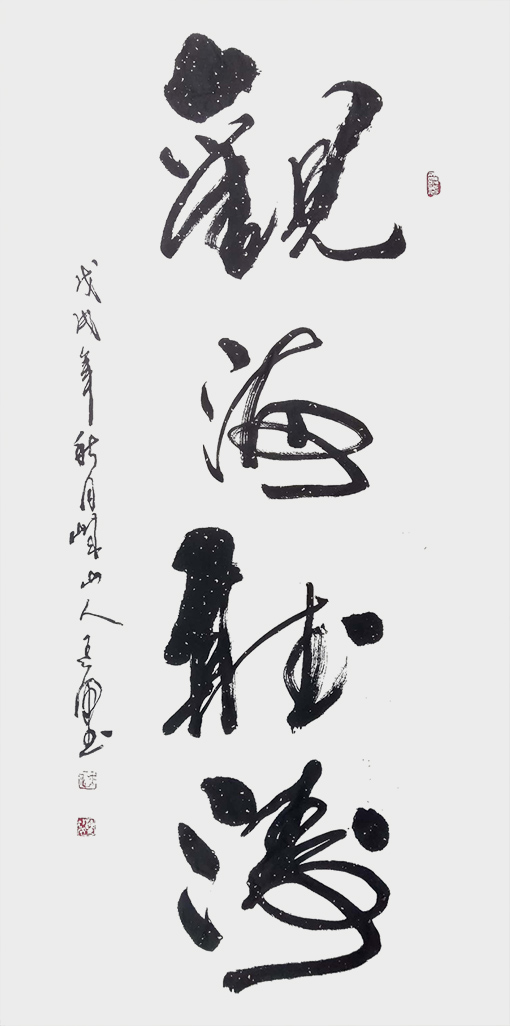 觀海聽濤
戊戌年秋月 山人 書